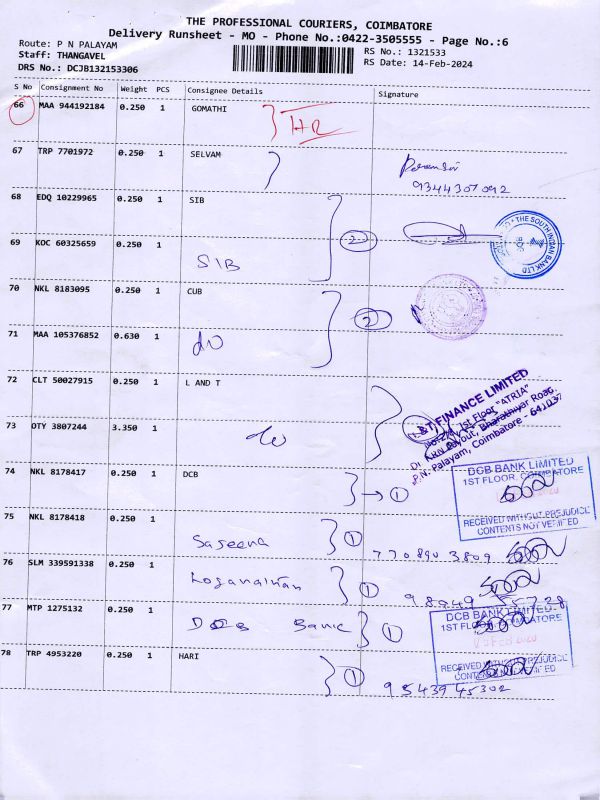 THE PROFESSIONAL COURIERS, COIMBATORE
Delivery Runsheet - MO - Phone No.:0422-3505555 - Page No.:6
Route: P N PALAYAM
Staff: THANGAVEL
DRS No.: DCJB132153306
RS No.: 1321533
RS Date: 14-Feb-2024
S No Consignment No Weight PCS Consignee Details Signature
66 MAA 944192184 0.250 1 GOMATHI HR
67 TRP 7701972 0.250 1 SELVAM
9344307092
68 EDQ 10229965 0.250 1 SIB
2
THE SOUTH INDIAN BANK LTD
69 KOC 60325659 0.250 1
SIB
70 NKL 8183095 0.250 1 CUB
2
71 MAA 105376852 0.630 1
do
72 CLT 50027915 0.250 1 L AND T
L&T FINANCE LIMITED
1st Floor "ATRIA"
Layout, Bharathiyar Road,
P.N. Palayam, Coimbatore - 641037
73 OTY 3807244 3.350 1
do
74 NKL 8178417 0.250 1 DCB
→ 1
DCB BANK LIMITED
1ST FLOOR. COIMBATORE
RECEIVED WITHOUT PREJUDICE
CONTENTS NOT VERIFIED
75 NKL 8178418 0.250 1
Sajeena 1 770890 3809
76 SLM 339591338 0.250 1
Loganathan 1
77 MTP 1275132 0.250 1
DCB Bank 1
DCB BANK LIMITED.
1ST FLOOR. COIMBATORE
RECEIVED WITHOUT PREJUDICE
CONTENTS NOT VERIFIED
78 TRP 4953220 0.250 1 HARI
1 9543945302